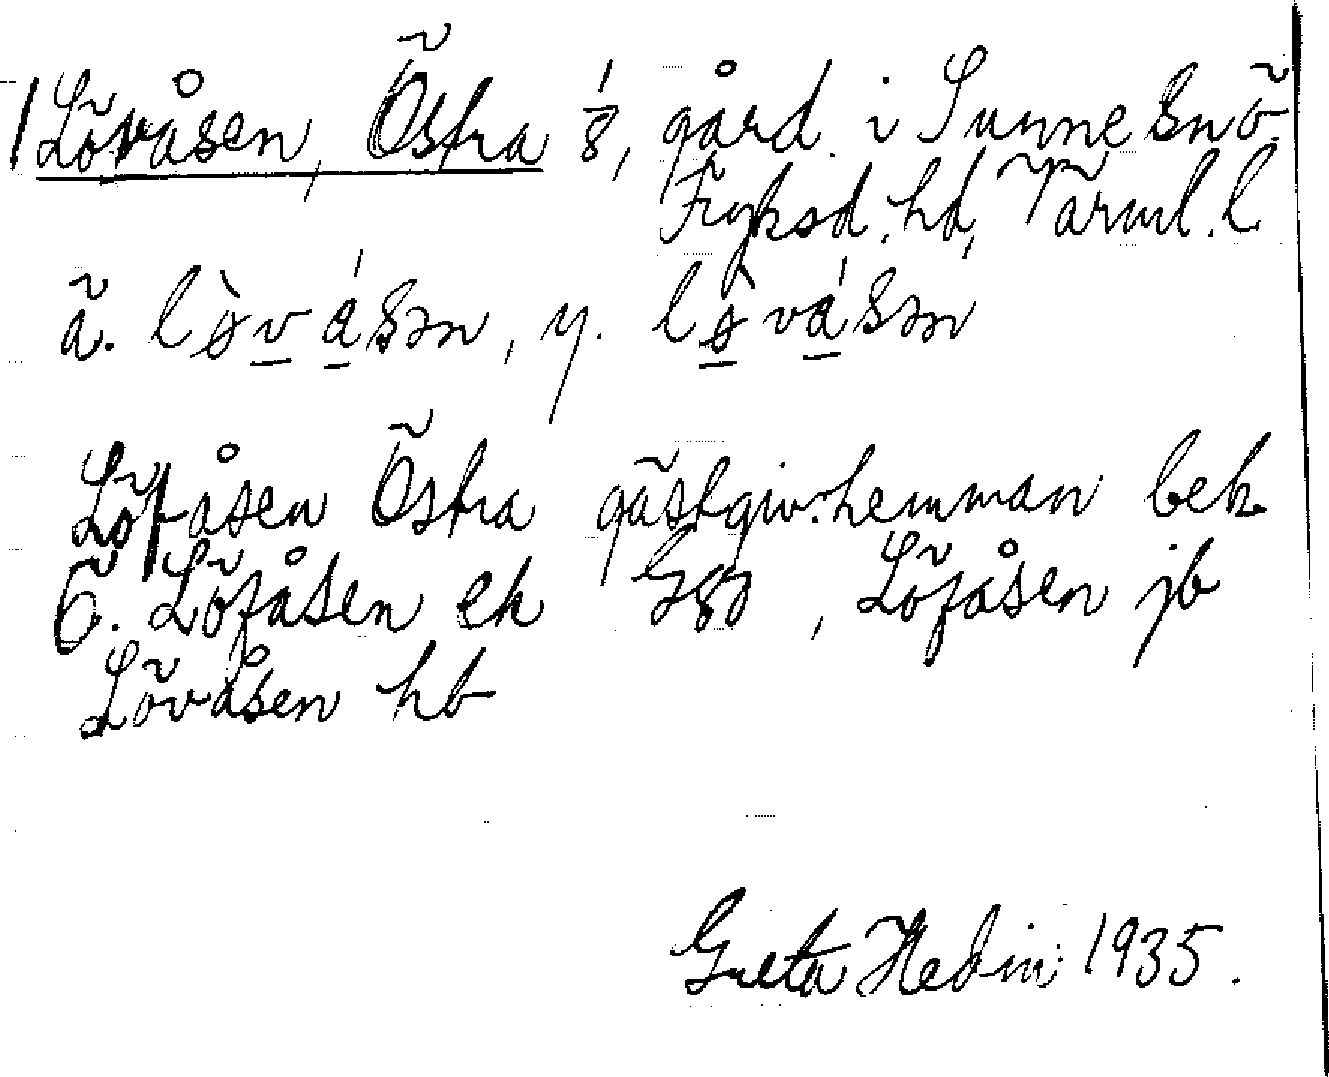 Lövåsen, Östra 1/8, gård i Sunne snö.
Fryksd. hd, Värml. l
ä. lòvásən, y. lòvásən
Löfåsen Östra gästgiv. hemman bek
Ö. Löfåsen ek , Löfåsen jb
Lövåsen hb
Greta Hedin 1935.